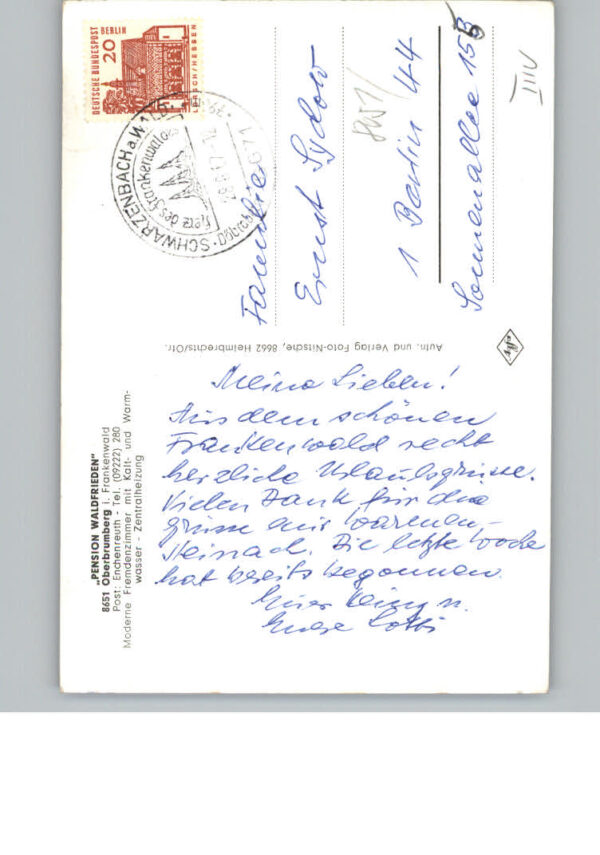 „PENSION WALDFRIEDEN"
8651 Oberbrumberg i. Frankenwald
Post: Enchenreuth - Tel. (09222) 280
Moderne Fremdenzimmer mit Kalt- und Warm-
wasser - Zentralheizung
Meine Lieben!
Aus dem schönen
Frankenwald recht
herzliche Urlaubsgrüsse.
Vielen Dank für die
Grüsse aus Warmen-
steinach. Die letzte Woche
hat bereits begonnen.
Euer Heinz u.
Eure Lotti
Aufn. und Verlag Foto-Nitsche, 8662 Heimbrechts/Ofr.
DEUTSCHE BUNDESPOST BERLIN
20
LORSCH/HESSEN
SCHWARZENBACH a. WALD
Herz des Frankenwaldes
8671
Familie
Ernst Sydow
1 Berlin 44
Sonnenallee 15